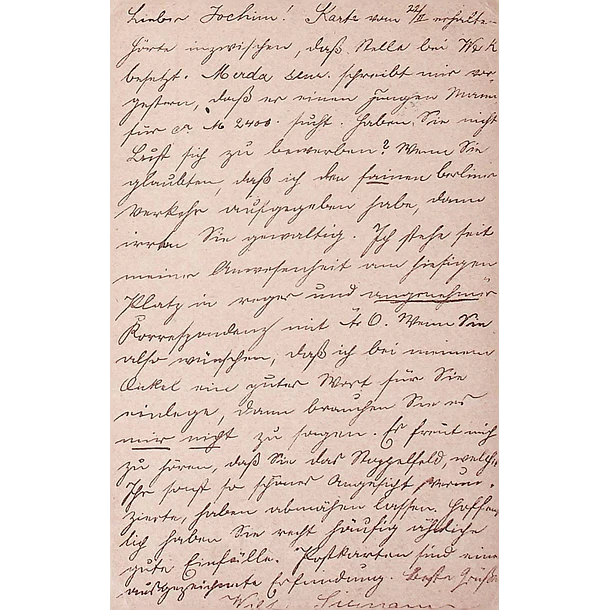 Lieber Jochim! Karte vom 22/II erhalten
hörte inzwischen, daß Stelle bei
besetzt. Merda sen. schreibt mir vor-
gestern, daß er einen jungen Mann
für ca M 2400. sucht. Haben Sie nicht
Lust sich zu bewerben? Wenn Sie
glaubten, daß ich den feinen berliner
Verkehr aufgegeben habe, dann
irren Sie gewaltig. Ich stehe seit
meiner Anwesenheit am hiesigen
Platz in reger und angenehmer
Korrespondenz mit O. Wenn Sie
also wünschen, daß ich bei meinem
Onkel ein gutes Wort für Sie
einlege, dann brauchen Sie es
mir nicht zu sagen. Es freut mich
zu hören, daß Sie das Stoppelfeld, welch.
Ihr sonst so schönes Angesicht verun-
zierte, haben abmähen lassen. Hoffent
lich haben Sie recht häufig ähnliche
gute Einfälle. Postkarten sind eine
ausgezeichnete Erfindung. Beste Grüße